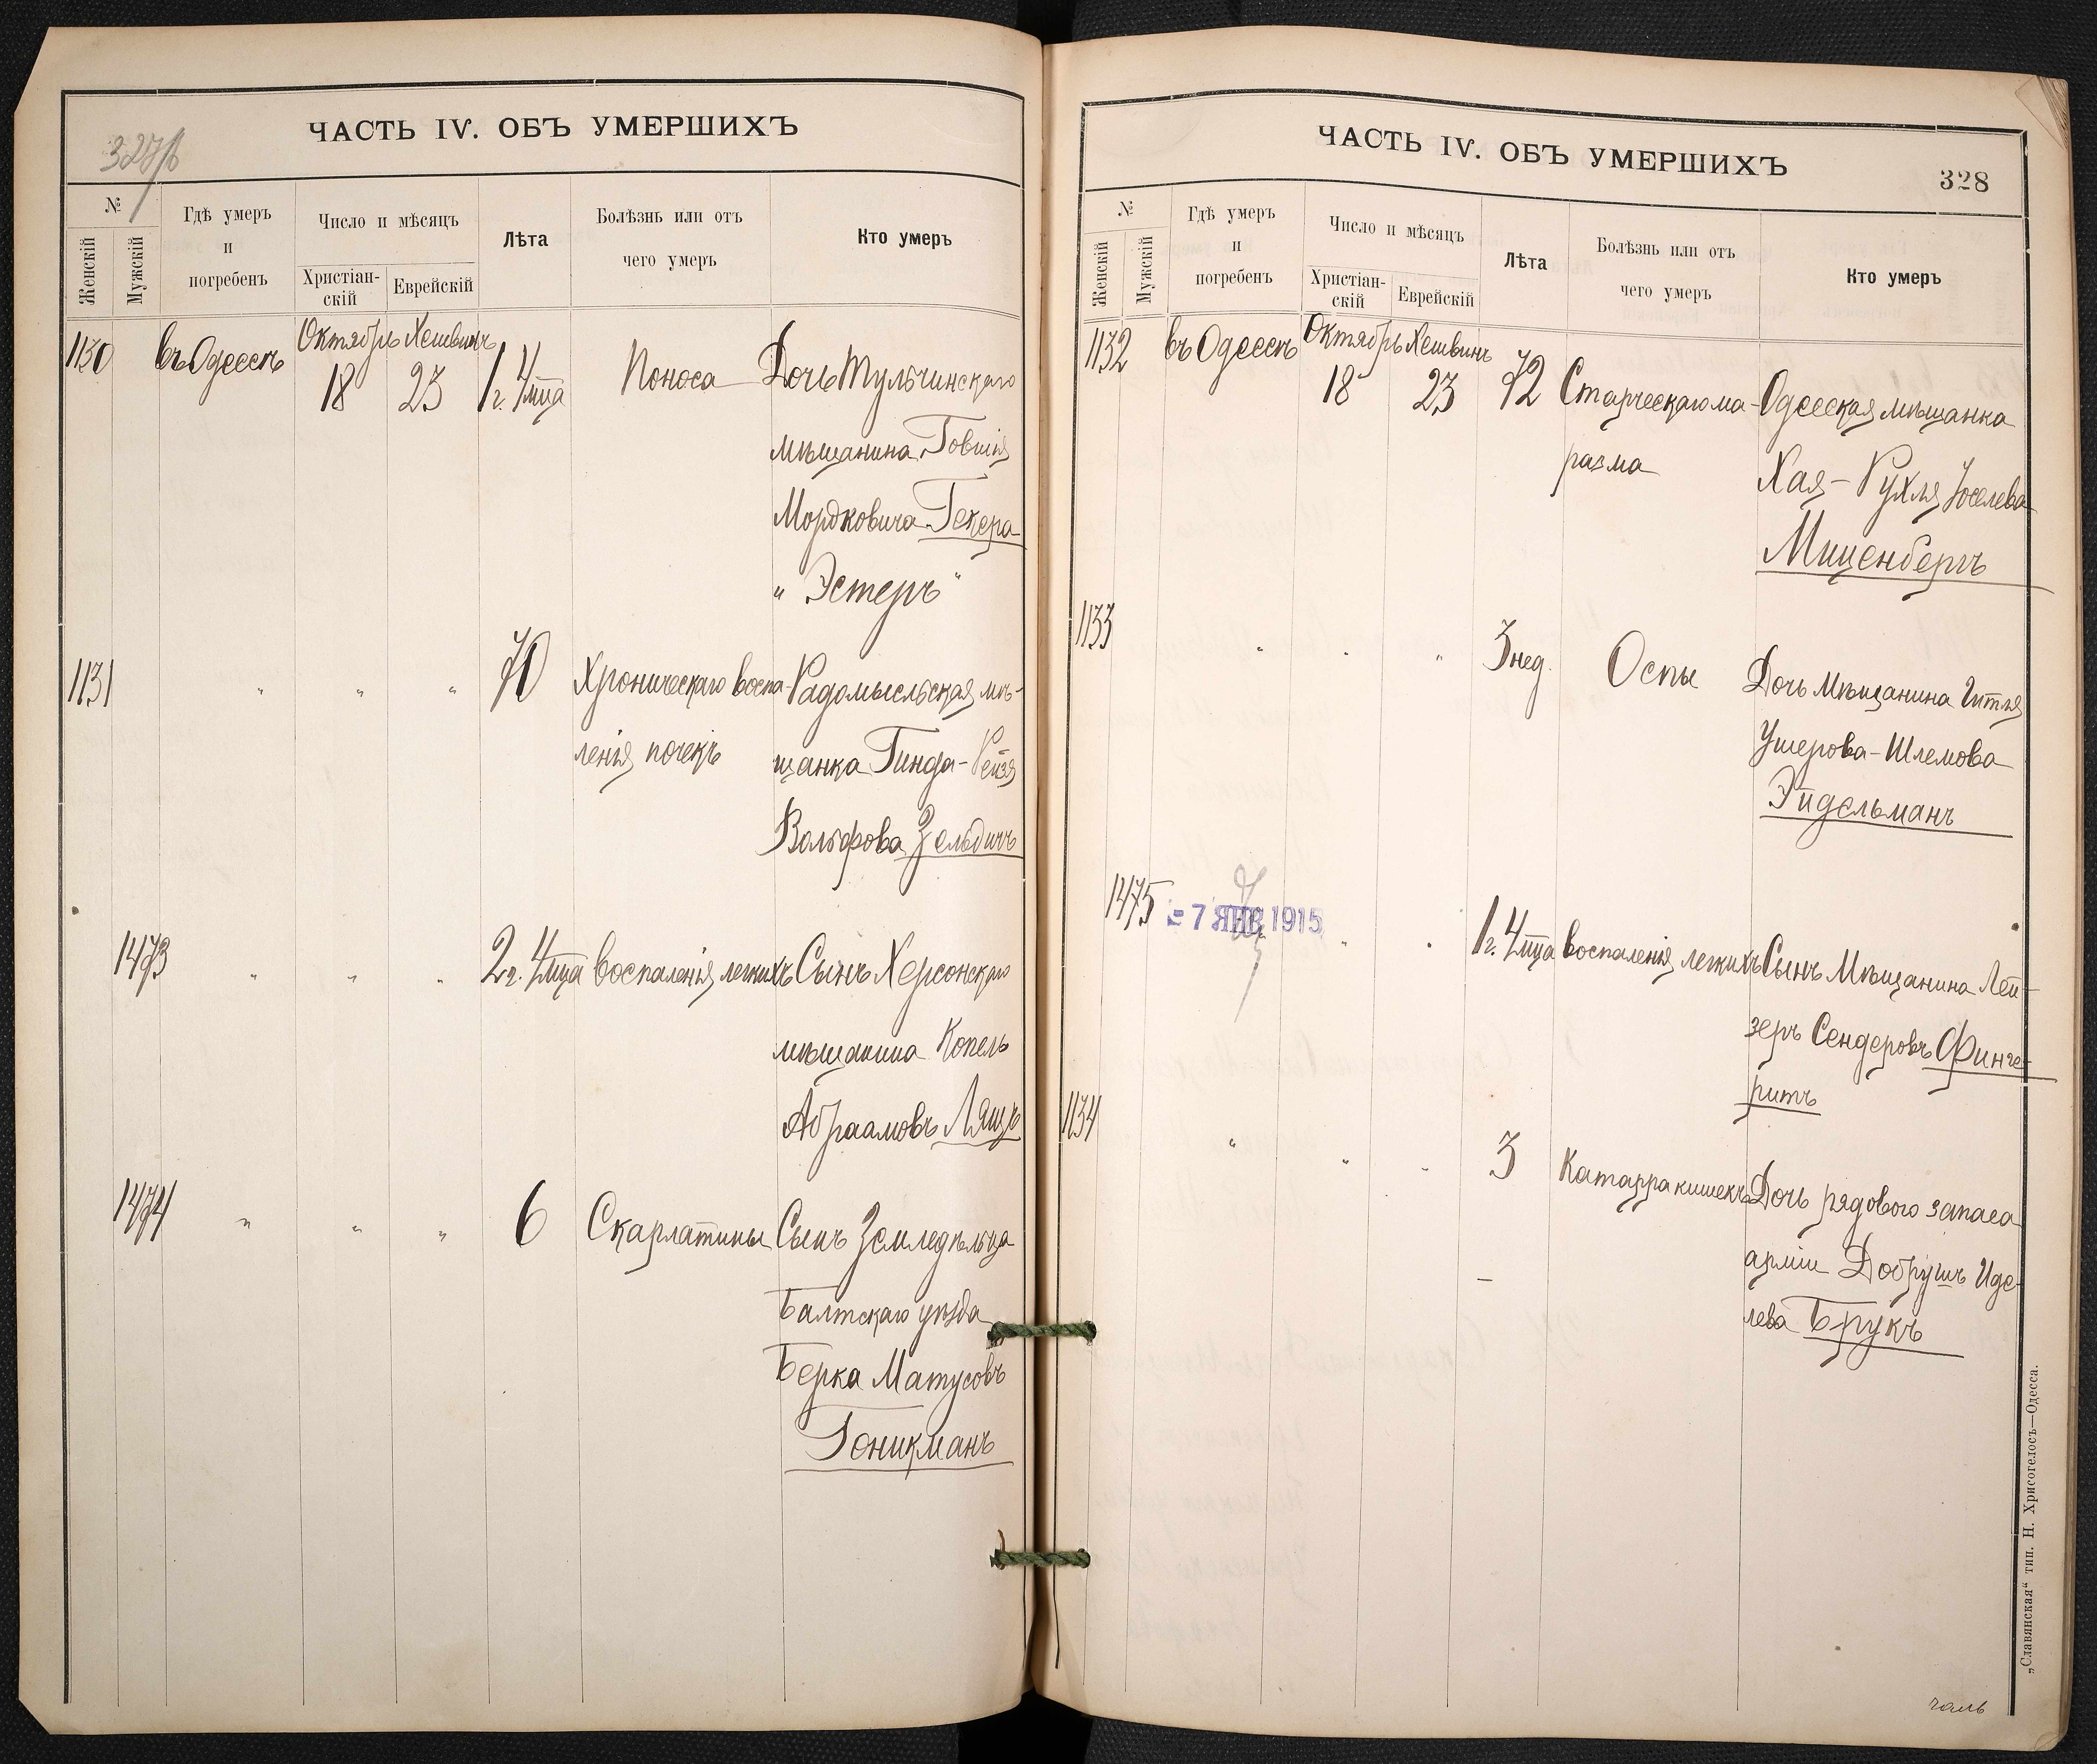 327/б
ЧАСТЬ IV. ОБЪ УМЕРШИХЪ
№
Женскій
Мужскій
Гдѣ умеръ
и
погребенъ
Число и мѣсяцъ
Христіан-
скій
Еврейскій
Лѣта
Болѣзнь или отъ
чего умеръ
Кто умеръ
1130 въ Одессѣ Октябрь Хешвинъ 18 23 1 г. 4 мца Поноса Дочь Тульчинскаго
мѣщанина Говшія
Мордковича Гекера
"Эстеръ"
1131 " " " 70 Хроническаго воспа- Радомысльская мѣ-
ленія почекъ щанка Гинда-Рейзя
Вольфова Зельдичъ
1473 " " " 2 г. 4 мца воспаленія легкихъ Сынъ Херсонскаго
мѣщанина Копель
Абраамовъ Лящъ
1474 " " " 6 Скарлатины Сынъ Земледѣльца
Балтскаго уѣзда
Берка Матусовъ
Гоникманъ
ЧАСТЬ IV. ОБЪ УМЕРШИХЪ
328
№
Женскій
Мужскій
Гдѣ умеръ
и
погребенъ
Число и мѣсяцъ
Христіан-
скій
Еврейскій
Лѣта
Болѣзнь или отъ
чего умеръ
Кто умеръ
1132 въ Одессѣ Октябрь Хешвинъ 18 23 72 Старческаго ма- Одесская мѣщанка
разма Хая-Рухля Іоселева
Миценбергъ
1133 " " " 3 нед. Оспы Дочь Мѣщанина Гитля
Ушерова-Шлемова
Эйдельманъ
1475 - 7 ЯНВ 1915 " " 1 г. 4 мца воспаленія легкихъ Сынъ Мѣщанина Лей-
зеръ Сендеровъ Финге-
ритъ
1134 " " " 3 Катарра кишекъ Дочь рядового запаса
арміи Добрушъ Иде-
лева Брукъ
„Славянская“ тип. Н. Хрисогелосъ—Одесса.